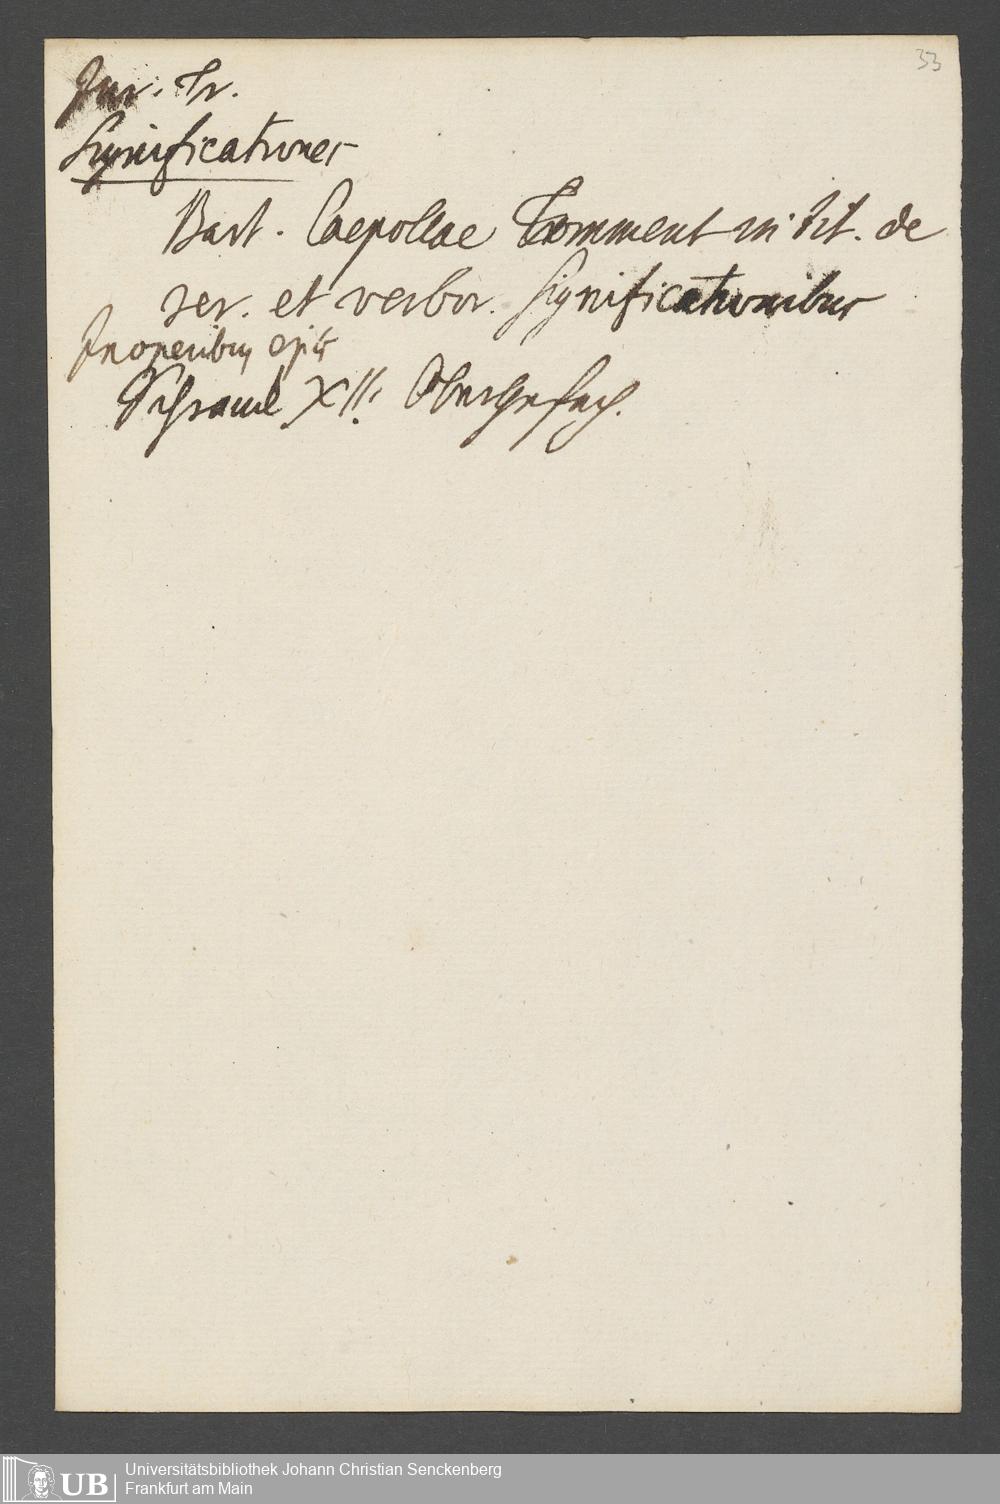 33
Jur. Tr.
Significationes
Bart. Caepollae Comment in tit. de
rer. et verbor. Significationibus
In operibus ejus
Schranck XII. Oberst Fach.
UB Universitätsbibliothek Johann Christian Senckenberg
Frankfurt am Main